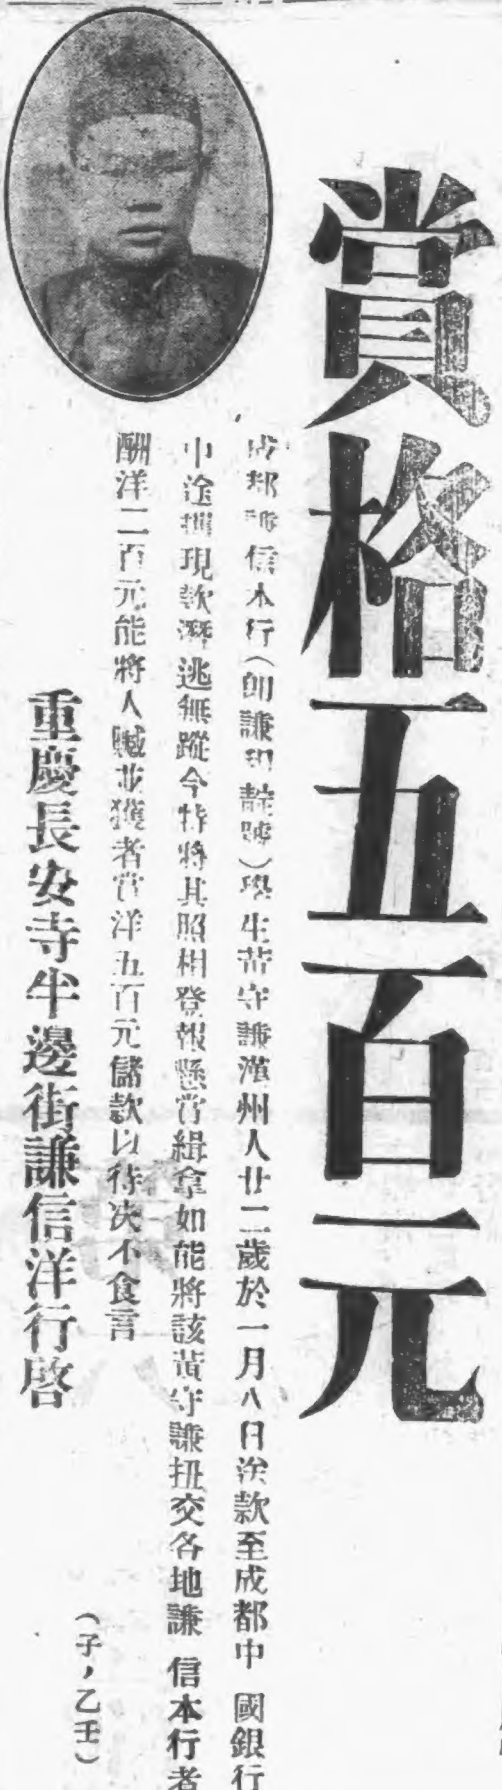 賞格五百元
成都謙信本行(即謙和靛號)學生黃守謙漢州人廿二歲於一月八日送款至成都中國銀行
中途攜現款潛逃無蹤今特將其照相登報懸賞緝拿如能將該黃守謙扭交各地謙信本行者
酬洋二百元能將人贓並獲者賞洋五百元儲款以待决不食言
重慶長安寺半邊街謙信洋行啓
(子,乙壬)